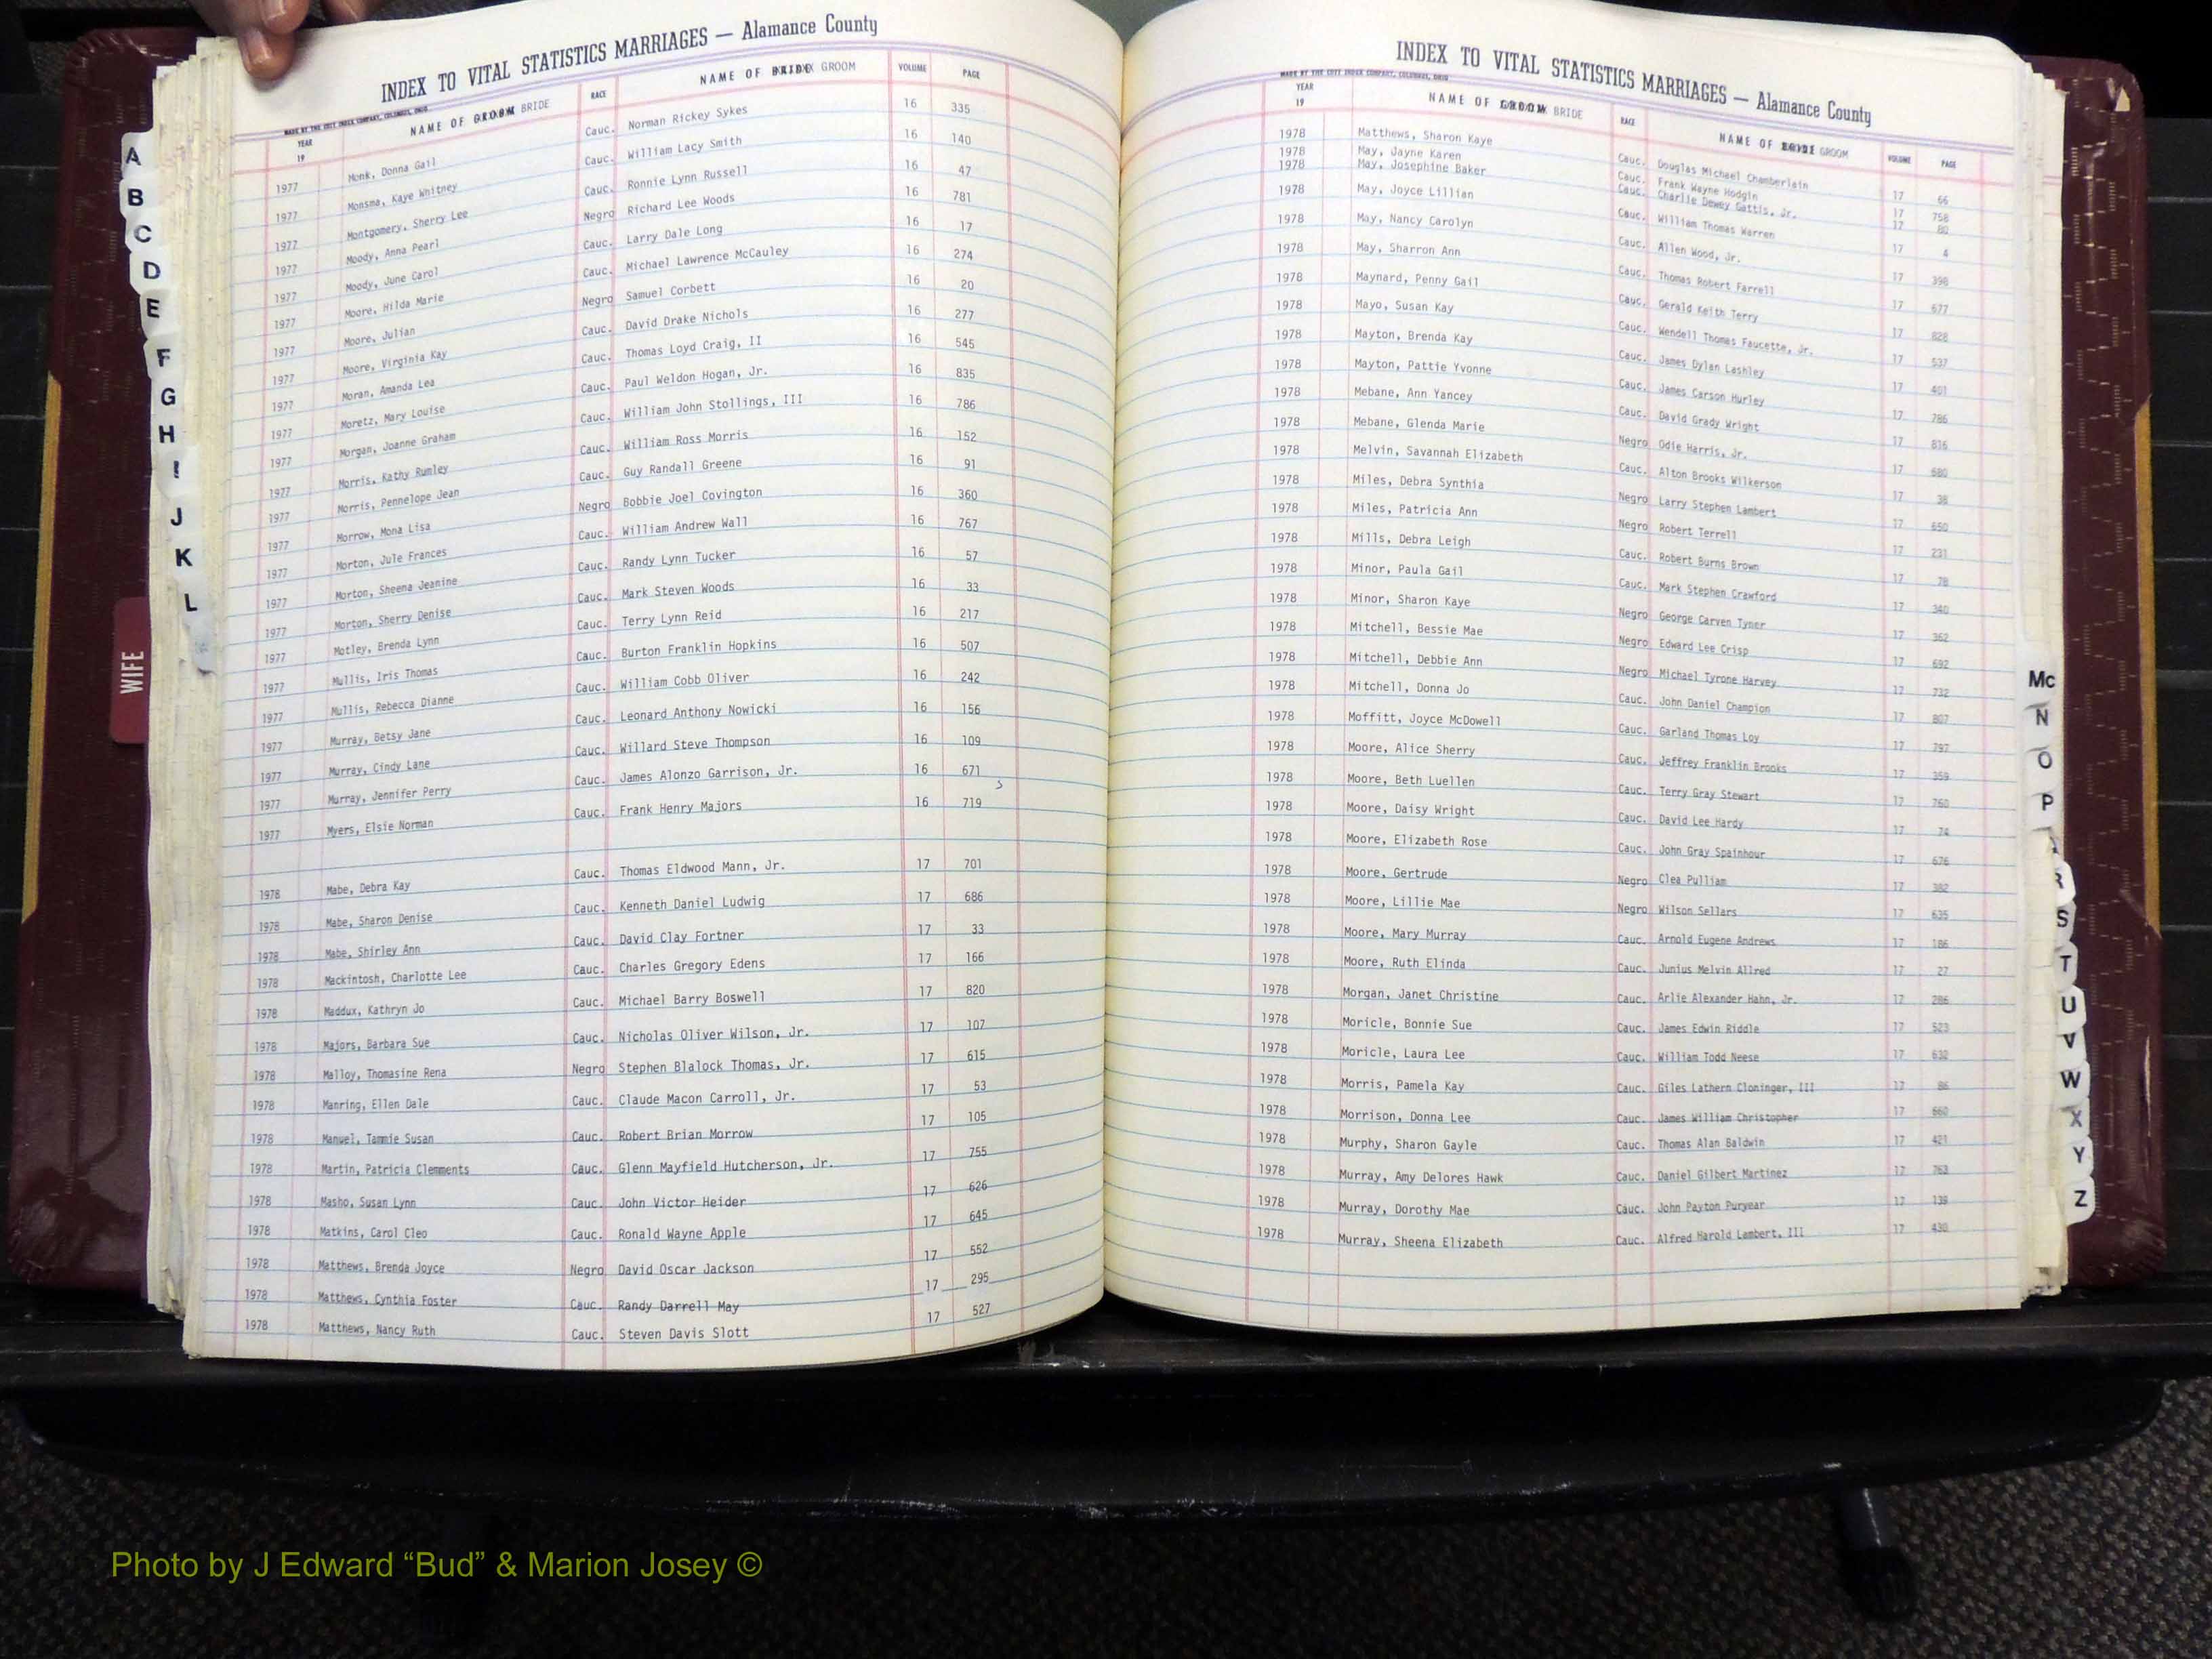 INDEX TO VITAL STATISTICS MARRIAGES — Alamance County
YEAR 19 NAME OF GROOM BRIDE RACE NAME OF BRIDE GROOM VOLUME PAGE
1977 Monk, Donna Gail Cauc. Norman Rickey Sykes 16 335
1977 Monsma, Kaye Whitney Cauc. William Lacy Smith 16 140
1977 Montgomery, Sherry Lee Cauc. Ronnie Lynn Russell 16 47
1977 Moody, Anna Pearl Negro Richard Lee Woods 16 781
1977 Moody, June Carol Cauc. Larry Dale Long 16 17
1977 Moore, Hilda Marie Cauc. Michael Lawrence McCauley 16 274
1977 Moore, Julian Negro Samuel Corbett 16 20
1977 Moore, Virginia Kay Cauc. David Drake Nichols 16 277
1977 Moran, Amanda Lea Cauc. Thomas Loyd Craig, II 16 545
1977 Moretz, Mary Louise Cauc. Paul Weldon Hogan, Jr. 16 835
1977 Morgan, Joanne Graham Cauc. William John Stollings, III 16 786
1977 Morris, Kathy Rumley Cauc. William Ross Morris 16 152
1977 Morris, Pennelope Jean Cauc. Guy Randall Greene 16 91
1977 Morrow, Mona Lisa Negro Bobbie Joel Covington 16 360
1977 Morton, Jule Frances Cauc. William Andrew Wall 16 767
1977 Morton, Sheena Jeanine Cauc. Randy Lynn Tucker 16 57
1977 Morton, Sherry Denise Cauc. Mark Steven Woods 16 33
1977 Motley, Brenda Lynn Cauc. Terry Lynn Reid 16 217
1977 Mullis, Iris Thomas Cauc. Burton Franklin Hopkins 16 507
1977 Mullis, Rebecca Dianne Cauc. William Cobb Oliver 16 242
1977 Murray, Betsy Jane Cauc. Leonard Anthony Nowicki 16 156
1977 Murray, Cindy Lane Cauc. Willard Steve Thompson 16 109
1977 Murray, Jennifer Perry Cauc. James Alonzo Garrison, Jr. 16 671
1977 Myers, Elsie Norman Cauc. Frank Henry Majors 16 719
1978 Mabe, Debra Kay Cauc. Thomas Eldwood Mann, Jr. 17 701
1978 Mabe, Sharon Denise Cauc. Kenneth Daniel Ludwig 17 686
1978 Mabe, Shirley Ann Cauc. David Clay Fortner 17 33
1978 Mackintosh, Charlotte Lee Cauc. Charles Gregory Edens 17 166
1978 Maddux, Kathryn Jo Cauc. Michael Barry Boswell 17 820
1978 Majors, Barbara Sue Cauc. Nicholas Oliver Wilson, Jr. 17 107
1978 Malloy, Thomasine Rena Negro Stephen Blalock Thomas, Jr. 17 615
1978 Manring, Ellen Dale Cauc. Claude Macon Carroll, Jr. 17 53
1978 Manuel, Tammie Susan Cauc. Robert Brian Morrow 17 105
1978 Martin, Patricia Clemments Cauc. Glenn Mayfield Hutcherson, Jr. 17 755
1978 Masho, Susan Lynn Cauc. John Victor Heider 17 626
1978 Matkins, Carol Cleo Cauc. Ronald Wayne Apple 17 645
1978 Matthews, Brenda Joyce Negro David Oscar Jackson 17 552
1978 Matthews, Cynthia Foster Cauc. Randy Darrell May 17 295
1978 Matthews, Nancy Ruth Cauc. Steven Davis Slott 17 527
INDEX TO VITAL STATISTICS MARRIAGES — Alamance County
MADE BY THE COTT INDEX COMPANY, COLUMBUS, OHIO
YEAR 19 NAME OF GROOM BRIDE RACE NAME OF BRIDE GROOM VOLUME PAGE
1978 Matthews, Sharon Kaye Cauc. Douglas Michael Chamberlain 17 66
1978 May, Jayne Karen Cauc. Frank Wayne Hodgin 17 758
1978 May, Josephine Baker Cauc. Charlie Dewey Gattis, Jr. 17 80
1978 May, Joyce Lillian Cauc. William Thomas Warren 17 4
1978 May, Nancy Carolyn Cauc. Allen Wood, Jr. 17 398
1978 May, Sharron Ann Cauc. Thomas Robert Farrell 17 677
1978 Maynard, Penny Gail Cauc. Gerald Keith Terry 17 828
1978 Mayo, Susan Kay Cauc. Wendell Thomas Faucette, Jr. 17 537
1978 Mayton, Brenda Kay Cauc. James Dylan Lashley 17 401
1978 Mayton, Pattie Yvonne Cauc. James Carson Hurley 17 786
1978 Mebane, Ann Yancey Cauc. David Grady Wright 17 816
1978 Mebane, Glenda Marie Negro Odie Harris, Jr. 17 680
1978 Melvin, Savannah Elizabeth Cauc. Alton Brooks Wilkerson 17 38
1978 Miles, Debra Synthia Negro Larry Stephen Lambert 17 650
1978 Miles, Patricia Ann Negro Robert Terrell 17 231
1978 Mills, Debra Leigh Cauc. Robert Burns Brown 17 78
1978 Minor, Paula Gail Cauc. Mark Stephen Crawford 17 340
1978 Minor, Sharon Kaye Negro George Carven Tyner 17 362
1978 Mitchell, Bessie Mae Negro Edward Lee Crisp 17 692
1978 Mitchell, Debbie Ann Negro Michael Tyrone Harvey 17 732
1978 Mitchell, Donna Jo Cauc. John Daniel Champion 17 807
1978 Moffitt, Joyce McDowell Cauc. Garland Thomas Loy 17 797
1978 Moore, Alice Sherry Cauc. Jeffrey Franklin Brooks 17 359
1978 Moore, Beth Luellen Cauc. Terry Gray Stewart 17 760
1978 Moore, Daisy Wright Cauc. David Lee Hardy 17 74
1978 Moore, Elizabeth Rose Cauc. John Gray Spainhour 17 676
1978 Moore, Gertrude Negro Clea Pulliam 17 382
1978 Moore, Lillie Mae Negro Wilson Sellars 17 635
1978 Moore, Mary Murray Cauc. Arnold Eugene Andrews 17 186
1978 Moore, Ruth Elinda Cauc. Junius Melvin Allred 17 27
1978 Morgan, Janet Christine Cauc. Arlie Alexander Hahn, Jr. 17 286
1978 Moricle, Bonnie Sue Cauc. James Edwin Riddle 17 523
1978 Moricle, Laura Lee Cauc. William Todd Neese 17 632
1978 Morris, Pamela Kay Cauc. Giles Lathern Cloninger, III 17 86
1978 Morrison, Donna Lee Cauc. James William Christopher 17 660
1978 Murphy, Sharon Gayle Cauc. Thomas Alan Baldwin 17 421
1978 Murray, Amy Delores Hawk Cauc. Daniel Gilbert Martinez 17 763
1978 Murray, Dorothy Mae Cauc. John Payton Puryear 17 139
1978 Murray, Sheena Elizabeth Cauc. Alfred Harold Lambert, III 17 430
A
B
C
D
E
F
G
H
I
J
K
L
WIFE
Mc
N
O
P
R
S
T
U
V
W
X
Y
Z
Photo by J Edward “Bud” & Marion Josey ©